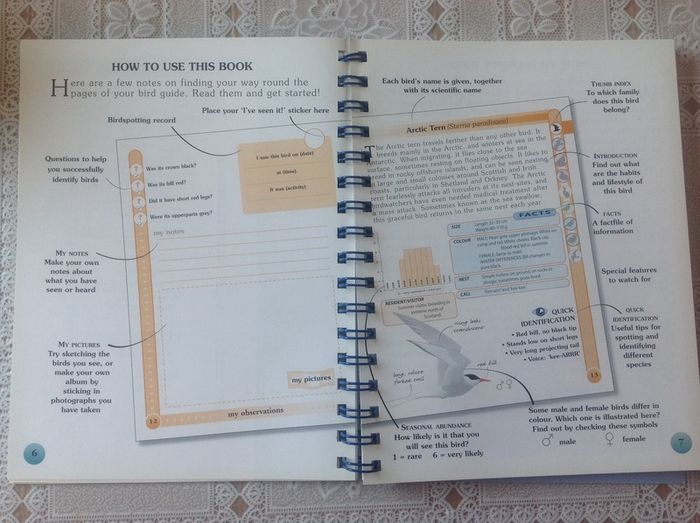 HOW TO USE THIS BOOK
Here are a few notes on finding your way round the
pages of your bird guide. Read them and get started!
Place your 'I've seen it!' sticker here
Birdspotting record
Questions to help
you successfully
identify birds
MY NOTES
Make your own
notes about
what you have
seen or heard
MY PICTURES
Try sketching the
birds you see, or
make your own
album by
sticking in
photographs you
have taken
Was its crown black?
Was its bill red?
Did it have short red legs?
Were its upperparts grey?
I saw this bird on (date)
at (time)
It was (activity)
my notes
my pictures
12
my observations
6
Each bird's name is given, together
with its scientific name
THUMB INDEX
To which family
does this bird
belong?
INTRODUCTION
Find out what
are the habits
and lifestyle of
this bird
FACTS
A factfile of
information
Special features
to watch for
QUICK
IDENTIFICATION
Useful tips for
spotting and
identifying
different
species
Arctic Tern (Sterna paradisaea)
The Arctic tern travels farther than any other bird. It
breeds mainly in the Arctic, and winters at sea in the
Antarctic. When migrating, it flies close to the sea
surface, sometimes resting on floating objects. It likes to
feed in rocky offshore islands, and can be seen nesting
in large and small colonies around Scottish and Irish
coasts, particularly in Shetland and Orkney. The Arctic
tern fearlessly attacks all intruders at its nest-sites, and
birdwatchers have even needed medical treatment after
a mass attack. Sometimes known as the sea swallow,
this graceful bird returns to the same nest each year.
FACTS
SIZE
COLOUR
NEST
CALL
RESIDENT/VISITOR
Summer visitor, breeding in
extreme north of
Scotland.
QUICK
IDENTIFICATION
• Red bill, no black tip
• Stands low on short legs
• Very long projecting tail
• Voice: 'kee-ARRR'
wings looks
translucent
red bill
long, white
forked tail
13
SEASONAL ABUNDANCE
How likely is it that you
will see this bird?
1 = rare 6 = very likely
Some male and female birds differ in
colour. Which one is illustrated here?
Find out by checking these symbols
♂ male ♀ female
7